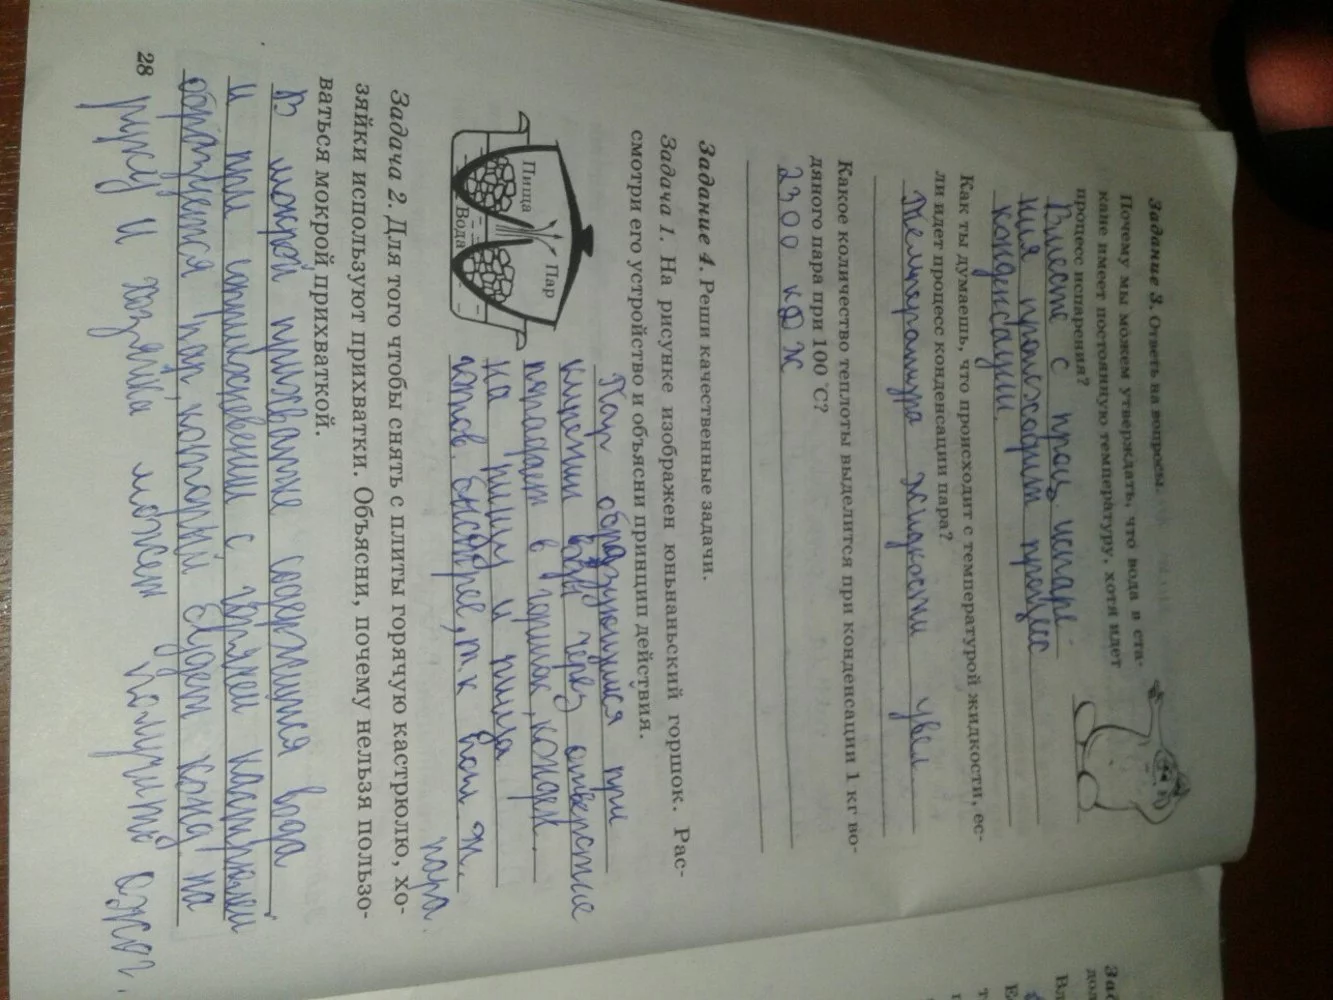 Задание 3. Ответь на вопросы.
Почему мы можем утверждать, что вода в ста-
кане имеет постоянную температуру, хотя идет
процесс испарения?
Вместе с проц. испаре-
ния происходит процесс
конденсации.
Как ты думаешь, что происходит с температурой жидкости, ес-
ли идет процесс конденсации пара?
Температура жидкости увел
Какое количество теплоты выделится при конденсации 1 кг во-
дяного пара при 100 °С?
2300 кДж
Задание 4. Реши качественные задачи.
Задача 1. На рисунке изображен юньнаньский горшок. Рас-
смотри его устройство и объясни принцип действия.
Пища
Пар
Вода
Пар образующийся при
кипении воды через отверстие
попадает в горшок, конденс.
на пищу и пища
готов. быстрее, т.к
пара.
Задача 2. Для того чтобы снять с плиты горячую кастрюлю, хо-
зяйки используют прихватки. Объясни, почему нельзя пользо-
ваться мокрой прихваткой.
В мокрой прихватке содержится вода
и при соприкосновении с горячей кастрюлей
образуется пар, который будет конд на
руку и хозяйка может получить ожог.
28